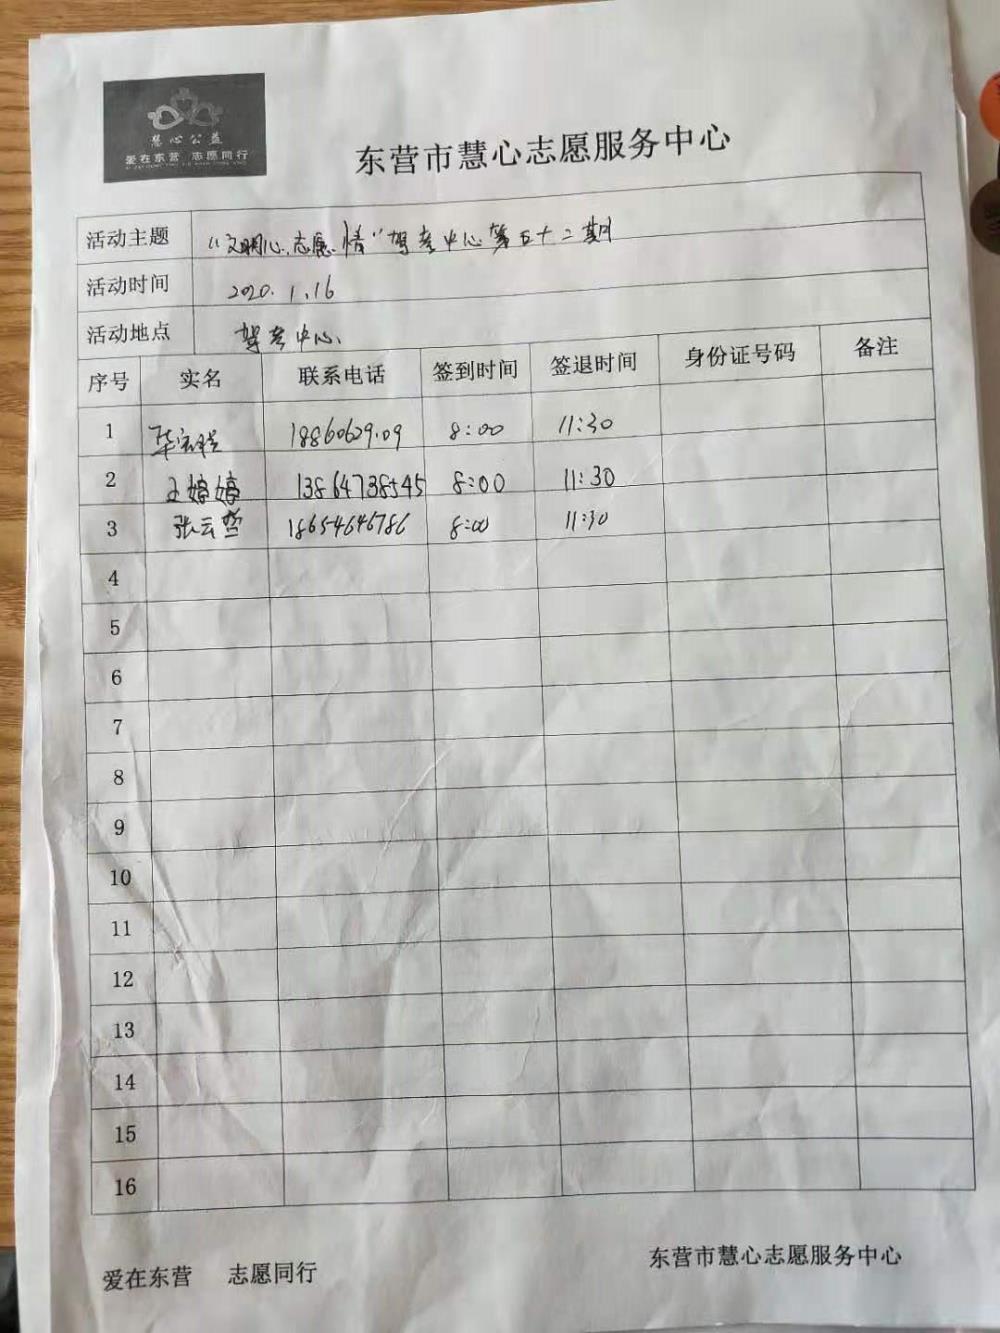 慧心公益
爱在东营 志愿同行
东营市慧心志愿服务中心
活动主题 “文明心、志愿情”驾考中心第五十二期
活动时间 2020.1.16
活动地点 驾考中心
序号 实名 联系电话 签到时间 签退时间 身份证号码 备注
1 18860629.09 8:00 11:30
2 王婷婷 13864738545 8:00 11:30
3 张云哲 18654646786 8:00 11:30
4
5
6
7
8
9
10
11
12
13
14
15
16
爱在东营 志愿同行 东营市慧心志愿服务中心